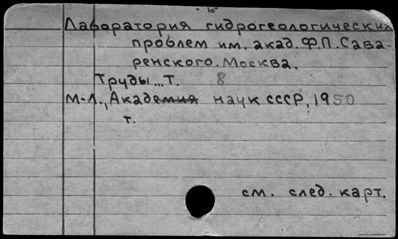 Лаборатория гидрогеологических
проблем им. акад. Ф.П. Сава-
ренского. Москва.
Труды... Т. 8
М-Л., Академия наук СССР, 1950
т.
см. след. карт.